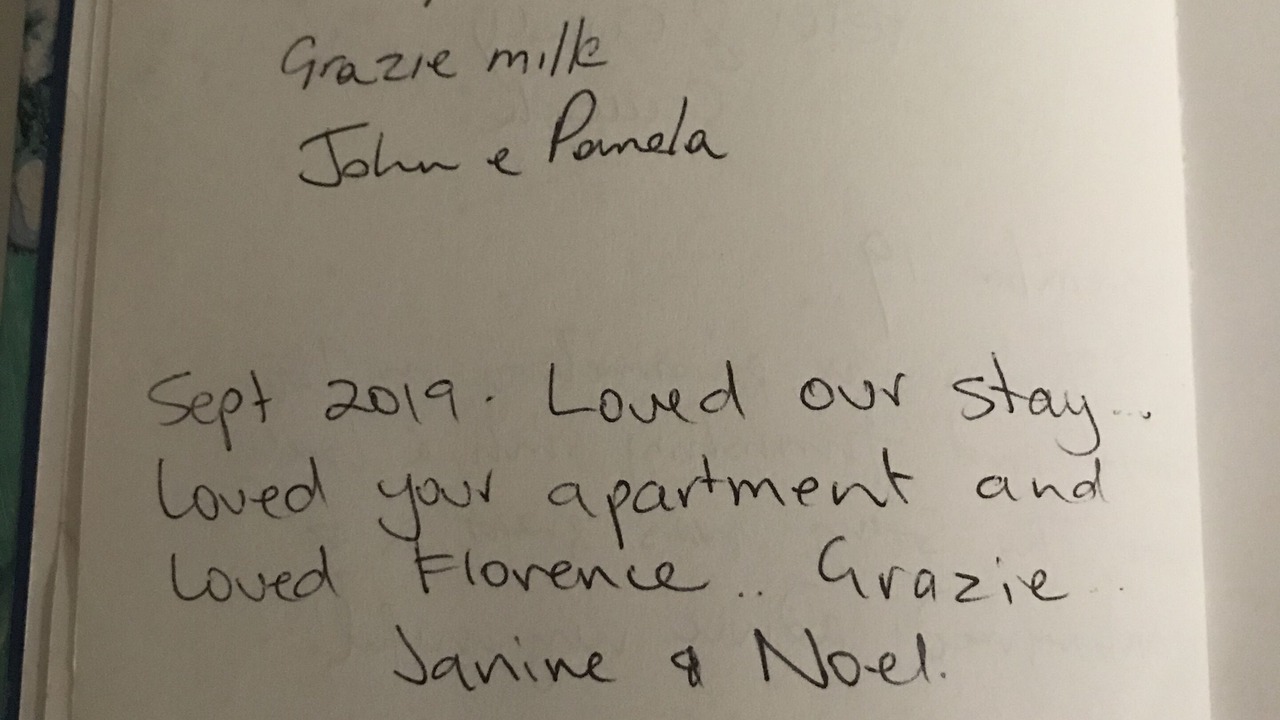 Grazie milk
John e Pamela
Sept 2019. Loved our stay...
Loved your apartment and
loved Florence.. Grazie..
Janine & Noel.